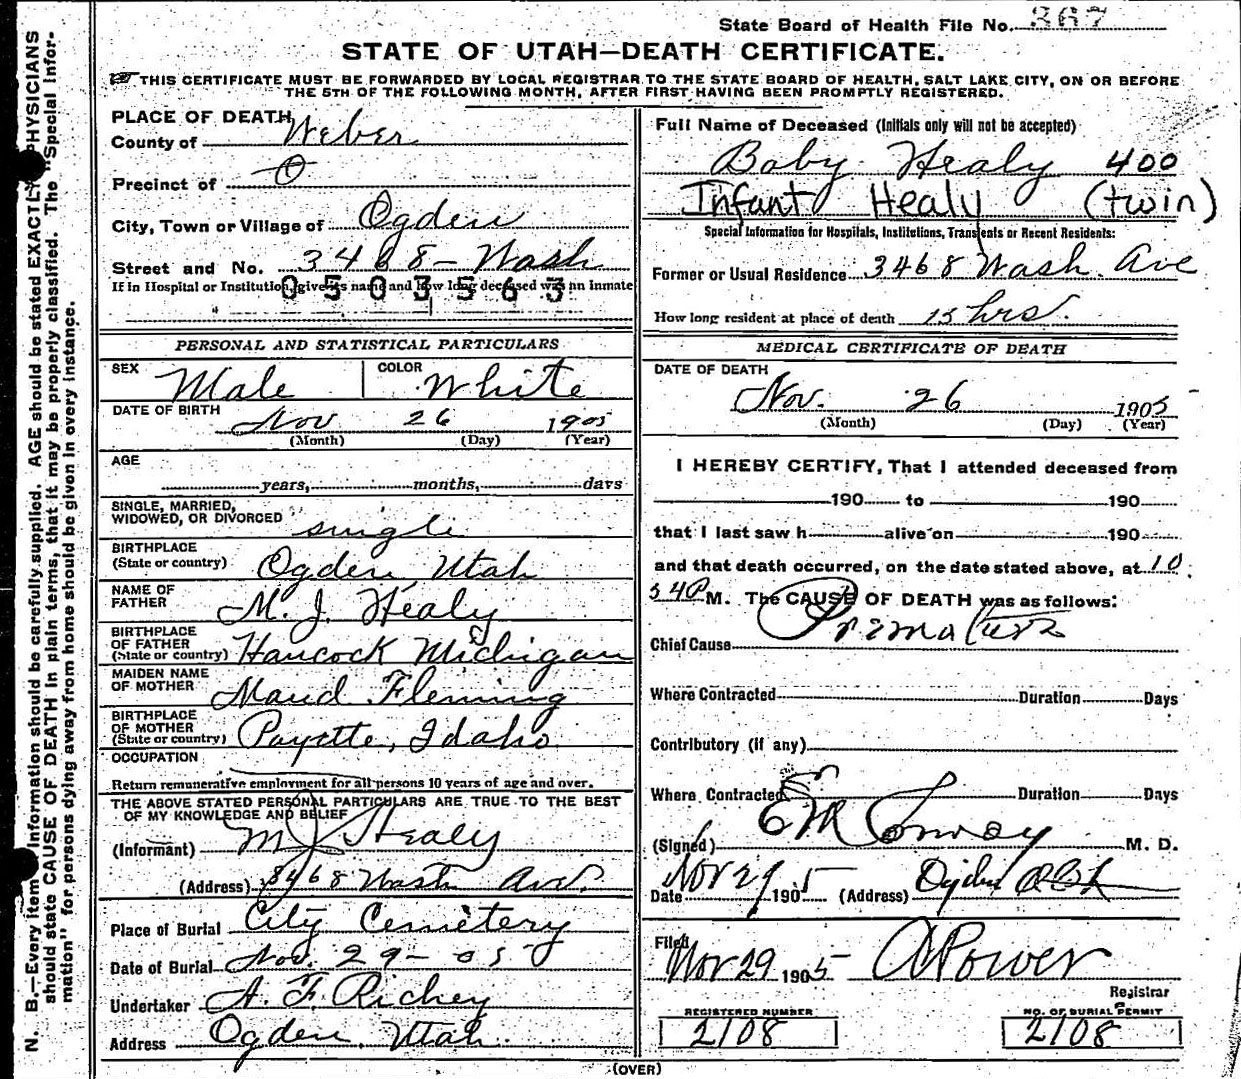 State Board of Health File No. 367
STATE OF UTAH—DEATH CERTIFICATE.
THIS CERTIFICATE MUST BE FORWARDED BY LOCAL REGISTRAR TO THE STATE BOARD OF HEALTH, SALT LAKE CITY, ON OR BEFORE
THE 5TH OF THE FOLLOWING MONTH, AFTER FIRST HAVING BEEN PROMPTLY REGISTERED.
PLACE OF DEATH
County of Weber
Precinct of O
City, Town or Village of Ogden
Street and No. 3468 - Wash
If in Hospital or Institution give its name and how long deceased was an inmate
0503563
PERSONAL AND STATISTICAL PARTICULARS
SEX Male COLOR White
DATE OF BIRTH
Nov 26 1905
(Month) (Day) (Year)
AGE
years, months, days
SINGLE, MARRIED,
WIDOWED, OR DIVORCED single
BIRTHPLACE
(State or country) Ogden, Utah
NAME OF
FATHER M. J. Healy
BIRTHPLACE
OF FATHER
(State or country) Hancock Michigan
MAIDEN NAME
OF MOTHER Maud Fleming
BIRTHPLACE
OF MOTHER
(State or country) Payette, Idaho
OCCUPATION
Return remunerative employment for all persons 10 years of age and over.
THE ABOVE STATED PERSONAL PARTICULARS ARE TRUE TO THE BEST
OF MY KNOWLEDGE AND BELIEF
(Informant) M J Healy
(Address) 3468 Wash Ave.
Place of Burial City Cemetery
Date of Burial Nov. 29 - 05
Undertaker A. F. Richey
Address Ogden, Utah.
Full Name of Deceased (Initials only will not be accepted)
Baby Healy 400
Infant Healy (twin)
Special Information for Hospitals, Institutions, Transients or Recent Residents:
Former or Usual Residence 3468 Wash. Ave
How long resident at place of death 15 hrs.
MEDICAL CERTIFICATE OF DEATH
DATE OF DEATH
Nov. 26 1905
(Month) (Day) (Year)
I HEREBY CERTIFY, That I attended deceased from
190 to 190
that I last saw h alive on 190
and that death occurred, on the date stated above, at 10
M. The CAUSE OF DEATH was as follows:
Chief Cause Premature
Where Contracted Duration Days
Contributory (if any)
Where Contracted Duration Days
(Signed) E M Conroy M. D.
Date Nov 29 1905 (Address) Ogden
Filed Nov 29 1905 A Power
Registrar
REGISTERED NUMBER
2108
NO. OF BURIAL PERMIT
2108
(OVER)
N. B.—Every item Information should be carefully supplied. AGE should be stated EXACTLY PHYSICIANS
should state CAUSE OF DEATH in plain terms, that it may be properly classified. The "Special Infor-
mation" for persons dying away from home should be given in every instance.